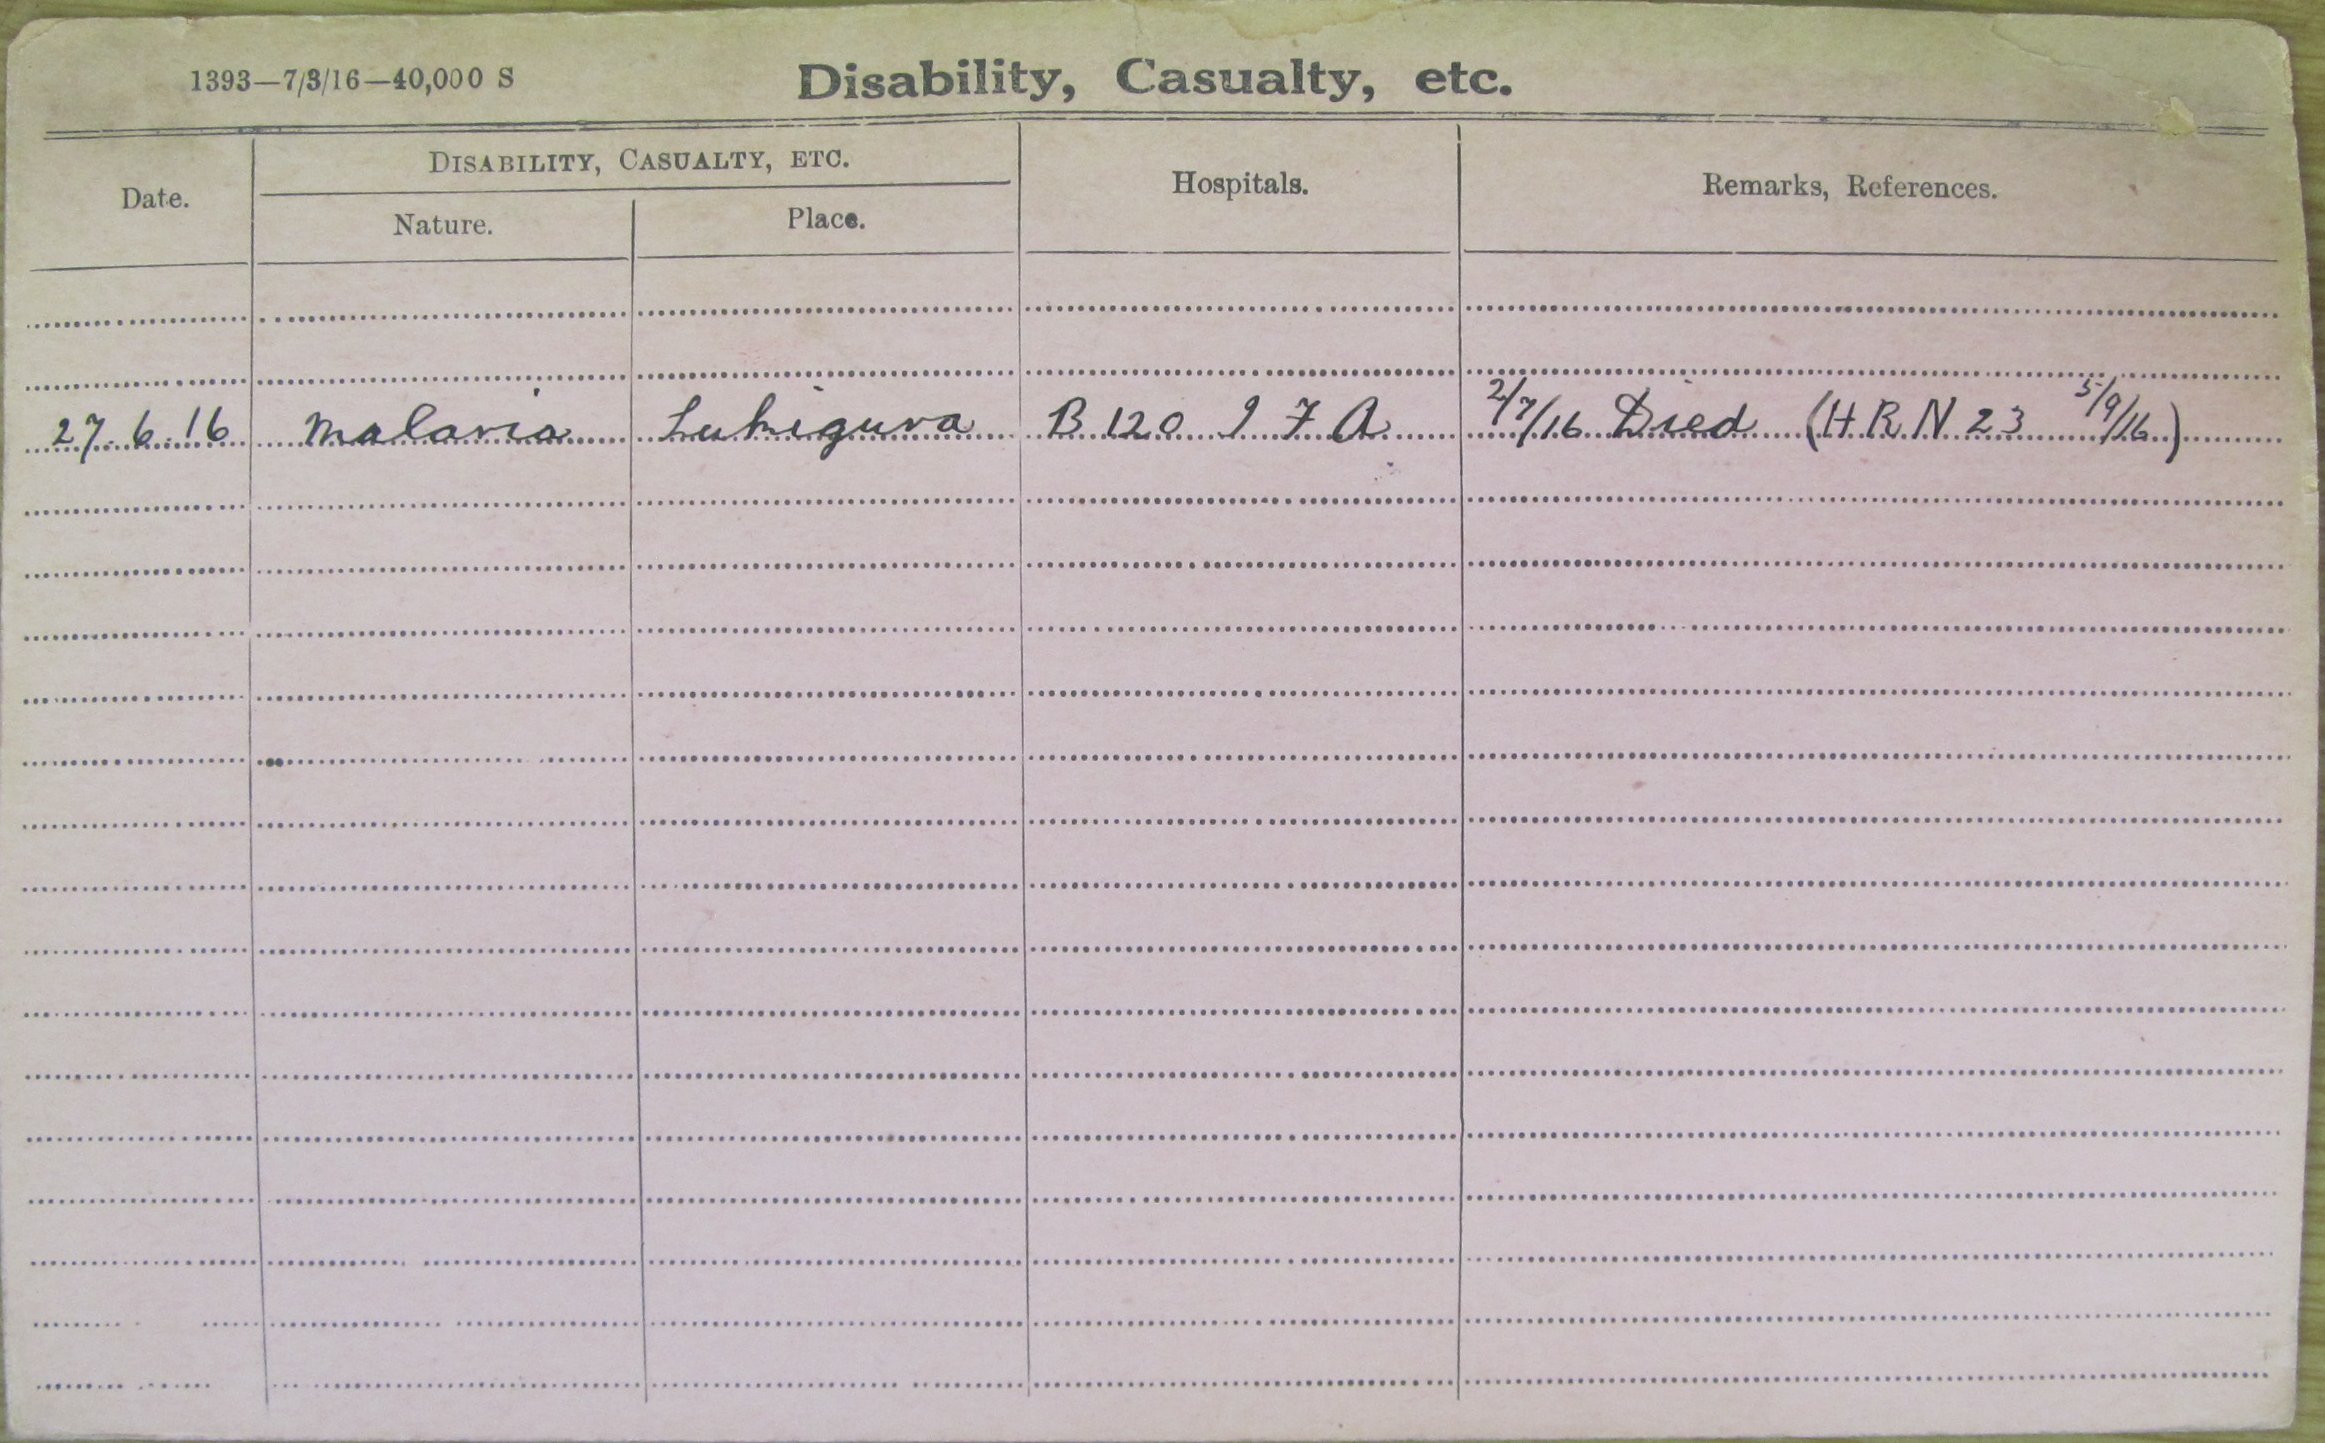 1393—7/3/16—40,000 S
Disability, Casualty, etc.
Date.
DISABILITY, CASUALTY, ETC.
Nature.
Place.
Hospitals.
Remarks, References.
27.6.16 Malaria Lukigura B 120 I F A 2/7/16 Died (H R N 23 5/9/16)